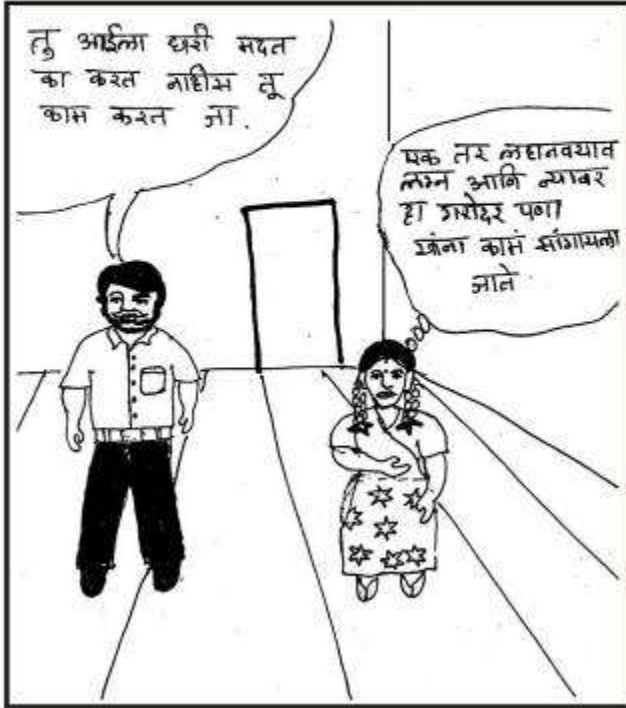 तु आईला घरी मदत
का करत नाहीस तू
काम करत जा.
एक तर लहानवयात
लग्न आणि त्यावर
हा गरोदर पणा
यांना कामं सांगायला
जाते